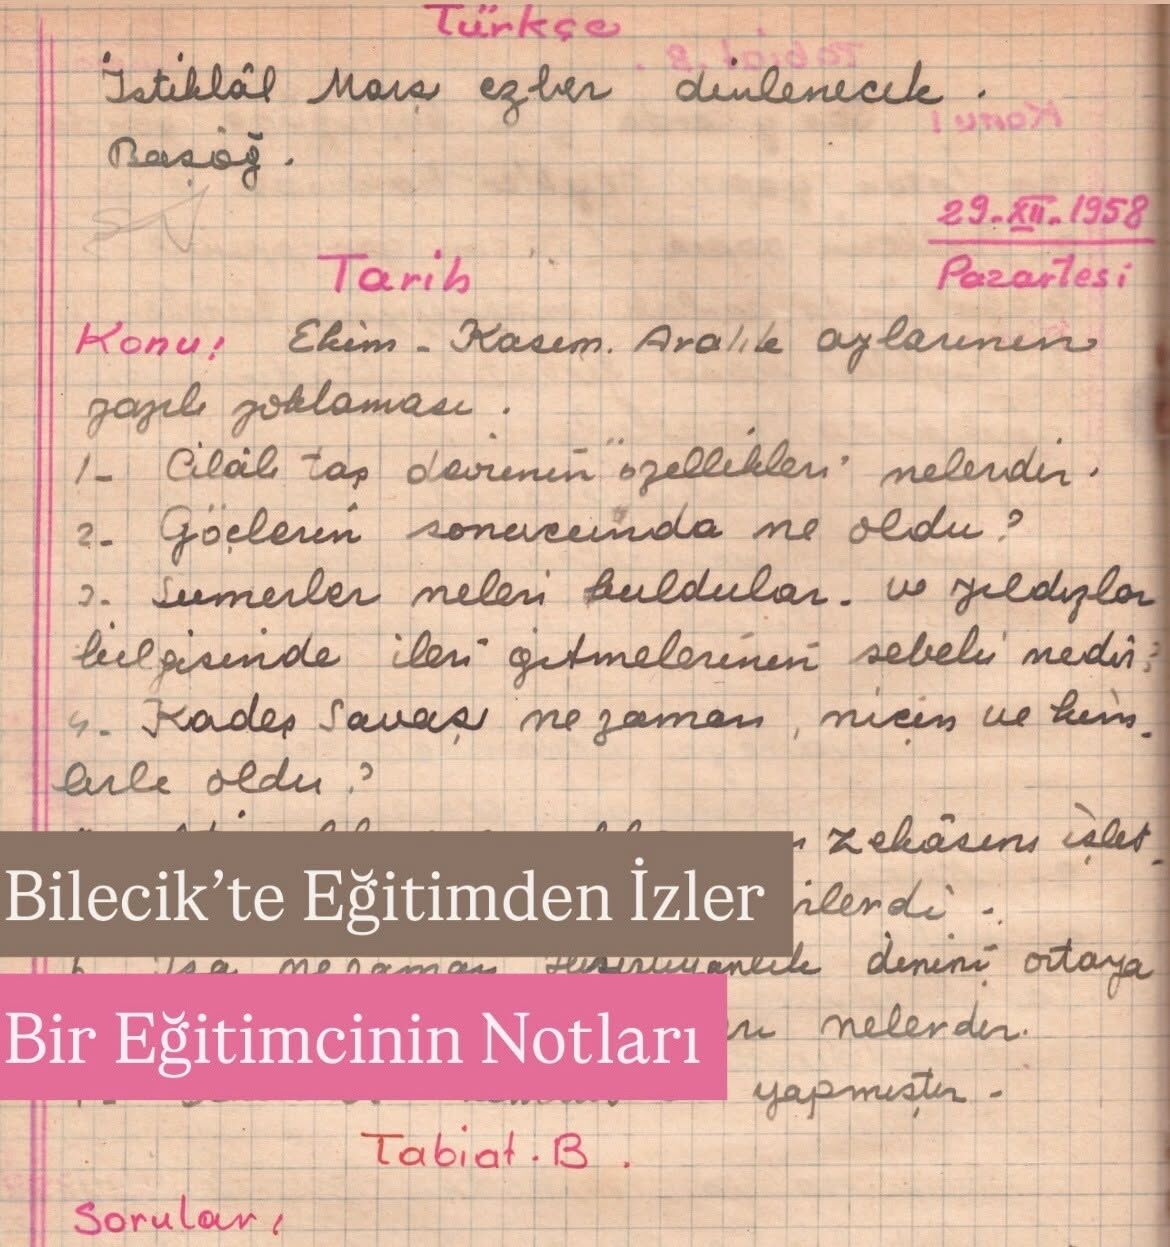 Türkçe
İstiklâl Marşı ezber dinlenecek.
Başöğ.
29.XII.1958
Pazartesi
Tarih
Konu: Ekim - Kasım. Aralık aylarının
yazılı yoklaması.
1- Cilâlı taş devrinin özellikleri nelerdir.
2- Göçlerin sonucunda ne oldu?
3. Sumerler neleri buldular. ve yıldızlar
bilgisinde ileri gitmelerinin sebebi nedir?
4. Kadeş Savaşı ne zaman, niçin ve kim-
lerle oldu?
zekâsını işlet-
Bilecik'te Eğitimden İzler
ilerdi.
6. İsa ne zaman Hıristiyanlık dinini ortaya
Bir Eğitimcinin Notları
nelerdir.
yapmıştır.
Tabiat. B.
Sorular: